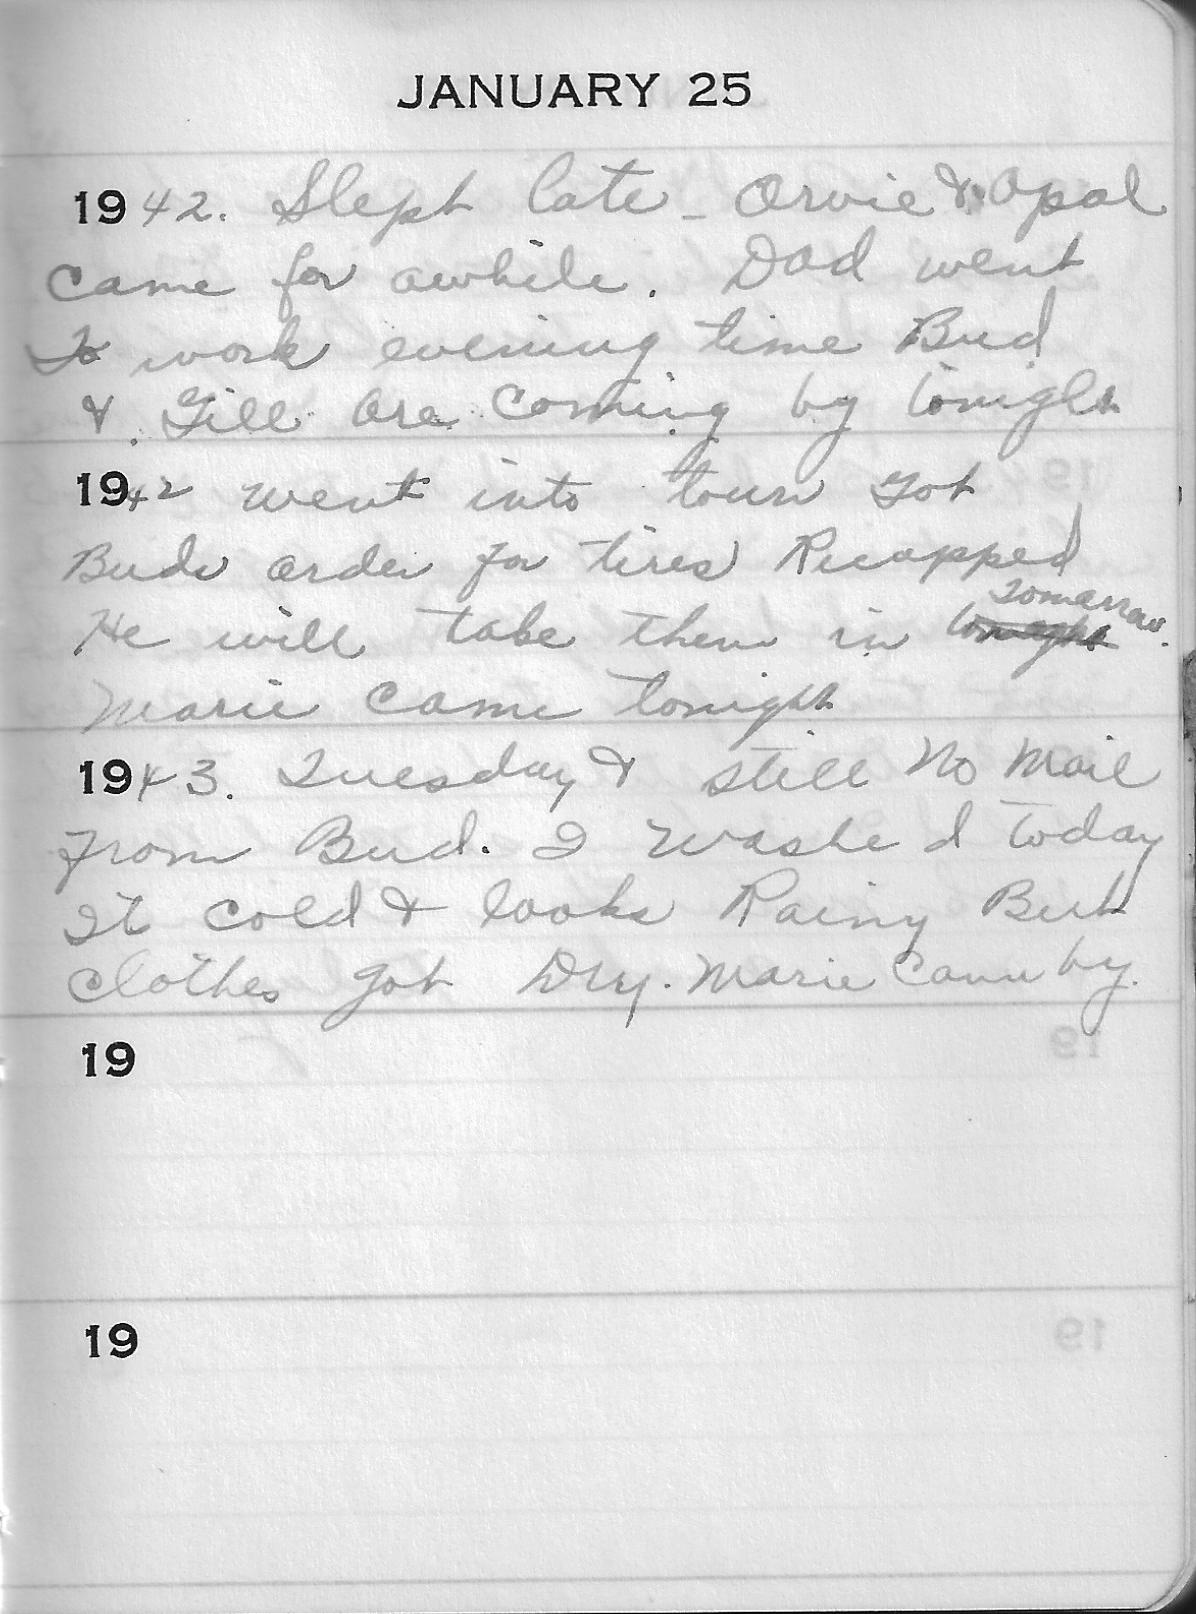 JANUARY 25
1942. Slept late - Orvie & Opal
came for awhile. Dad went
To work evening time Bud
& Gill are coming by tonight
1942 went into town Got
Buds order for tires Recapped
Tomarrow.
He will take them in tonight
Marie came tonight
1943. Tuesday & still No Mail
From Bud. I washed today
It cold & looks Rainy But
clothes got Dry. Marie Came by.
19
19